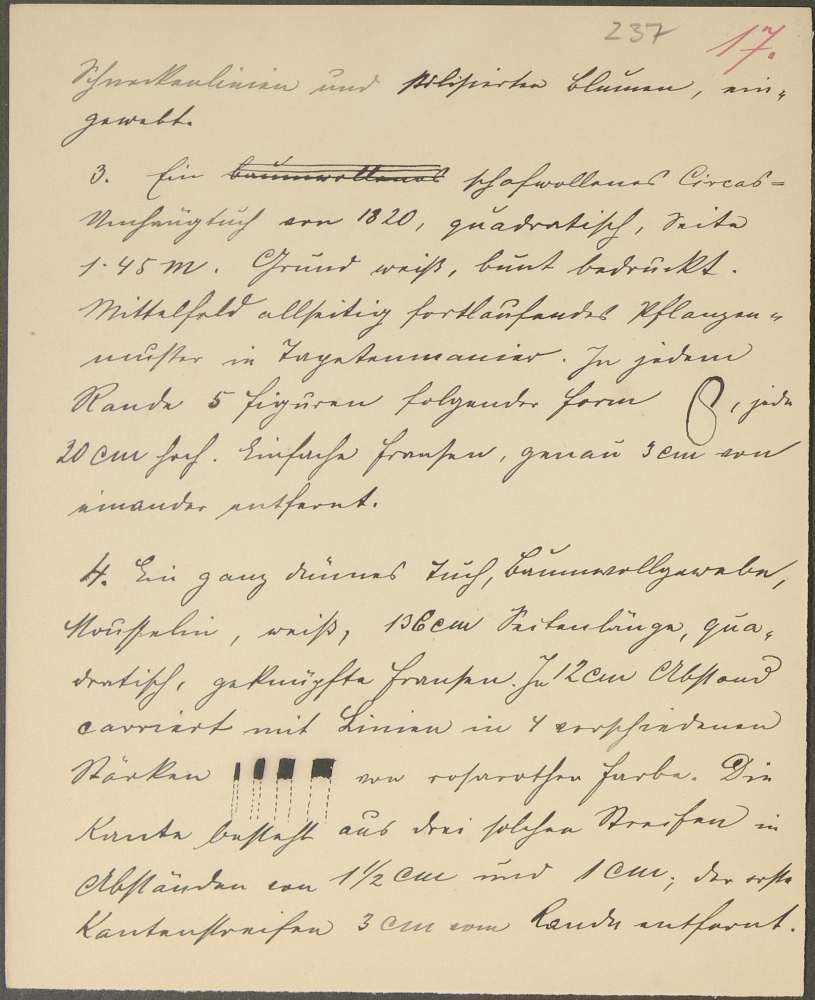 237 17.
Schneckenlinien und stilisierten Blumen, ein-
gewebt.
3. Ein baumwollenes schafwollenes Circas=
Umhängtuch von 1820, quadratisch, Seite
1·45 m. Grund weiß, bunt bedruckt.
Mittelfeld allseitig fortlaufendes Pflanzen-
muster in Tapetenmanier. In jedem
Rande 5 Figuren folgender Form , jede
20 cm hoch. Einfache Fransen, genau 3 cm von
einander entfernt.
4. Ein ganz dünnes Tuch, Baumwollgewebe,
Mousselin, weiß, 136 cm Seitenlänge, qua-
dratisch, geknüpfte Fransen. In 12 cm Abstand
carriert mit Linien in 4 verschiedenen
Stärken von rosarother Farbe. Die
Kante besteht aus drei solchen Streifen in
Abständen von 1 1/2 cm und 1 cm; der erste
Kantenstreifen 3 cm vom Rande entfernt.